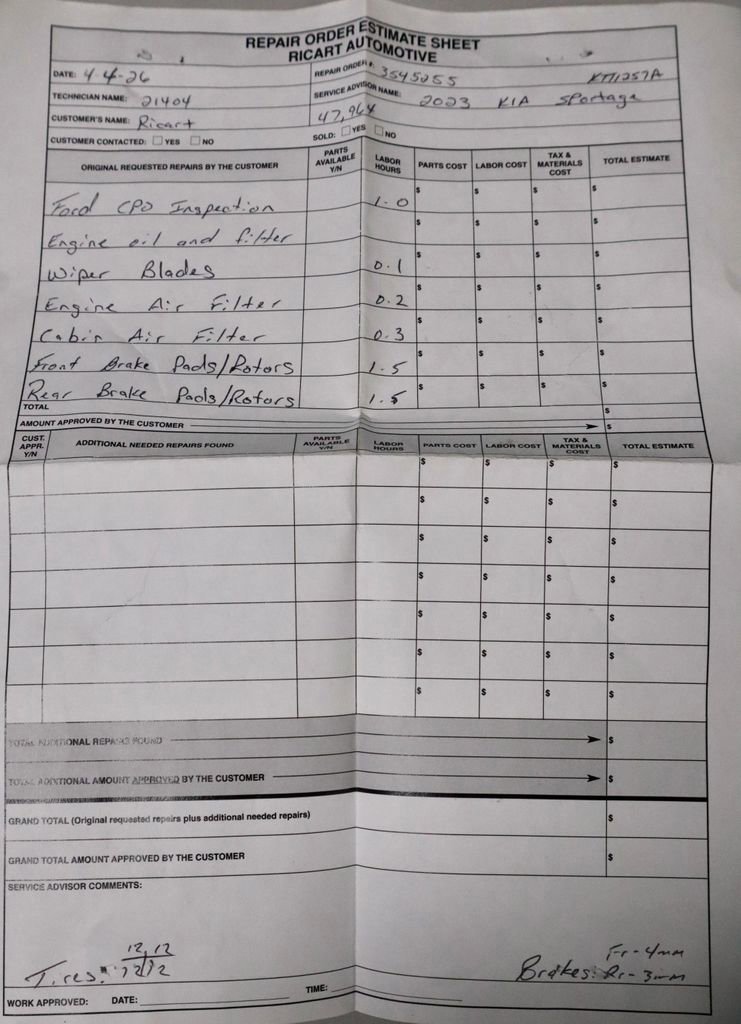 REPAIR ORDER ESTIMATE SHEET
RICART AUTOMOTIVE
DATE: 4-4-26 REPAIR ORDER #: 3545255 KT11257A
TECHNICIAN NAME: 21404 SERVICE ADVISOR NAME: 2023 KIA Sportage
CUSTOMER'S NAME: Ricart 47,964
CUSTOMER CONTACTED: YES NO SOLD: YES NO
ORIGINAL REQUESTED REPAIRS BY THE CUSTOMER PARTS AVAILABLE Y/N LABOR HOURS PARTS COST LABOR COST TAX & MATERIALS COST TOTAL ESTIMATE
Ford CPO Inspection 1.0 $ $ $ $
Engine oil and filter $ $ $ $
Wiper Blades 0.1 $ $ $ $
Engine Air Filter 0.2 $ $ $ $
Cabin Air Filter 0.3 $ $ $ $
Front Brake Pads/Rotors 1.5 $ $ $ $
Rear Brake Pads/Rotors 1.5 $ $ $ $
TOTAL $
AMOUNT APPROVED BY THE CUSTOMER $
CUST. APPR. Y/N ADDITIONAL NEEDED REPAIRS FOUND PARTS AVAILABLE Y/N LABOR HOURS PARTS COST LABOR COST TAX & MATERIALS COST TOTAL ESTIMATE
$ $ $ $
$ $ $ $
$ $ $ $
$ $ $ $
$ $ $ $
$ $ $ $
$ $ $ $
TOTAL ADDITIONAL REPAIRS FOUND $
TOTAL ADDITIONAL AMOUNT APPROVED BY THE CUSTOMER $
GRAND TOTAL (Original requested repairs plus additional needed repairs) $
GRAND TOTAL AMOUNT APPROVED BY THE CUSTOMER $
SERVICE ADVISOR COMMENTS:
12 12 Fr-4mm
Tires: 12 12 Brakes: Rr-3mm
WORK APPROVED: DATE: TIME: